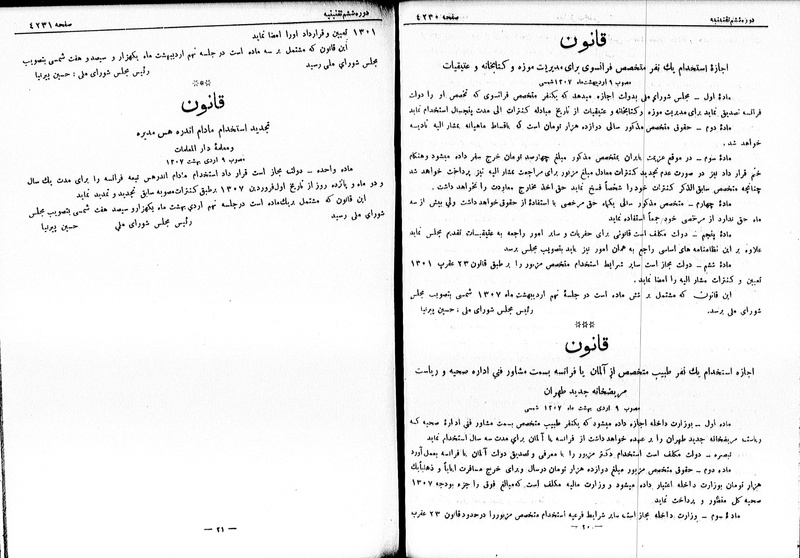 دوره ششم تقنینیه
صفحه ۴۲۳۰
قانون
اجازهٔ استخدام یك نفر متخصص فرانسوی برای مدیریت موزه و كتابخانه و عتیقیات
مصوب ۹ اردیبهشت‌ماه ۱۳۰۷ شمسی
مادهٔ اول ـ مجلس شورای ملی بدولت اجازه میدهد كه یكنفر متخصص فرانسوی كه تخصص او را دولت
فرانسه تصدیق نماید برای مدیریت موزه و كتابخانه و عتیقیات از تاریخ مبادله كنترات الی مدت پنجسال استخدام نماید
مادهٔ دوم ـ حقوق متخصص مذكور سالی دوازده هزار تومان است كه باقساط ماهیانه بمشار الیه تادیه
خواهد شد .
مادهٔ سوم ـ در موقع عزیمت بایران بمتخصص مذكور مبلغ چهارصد تومان خرج سفر داده میشود وهنگام
ختم قرار داد نیز در صورت عدم تجدید كنترات معادل مبلغ مزبور برای مراجعت مشار الیه نیز پرداخت خواهد شد
چنانچه متخصص سابق‌الذكر كنترات خود را شخصاً فسخ نماید حق اخذ مخارج معاودت را نخواهد داشت .
مادهٔ چهارم ـ متخصص مذكور سالی یكماه حق مرخصی با استفادهٔ از حقوق خواهد داشت ولی بیش از سه
ماه حق ندارد از مرخصی خود جمعاً استفاده نماید
مادهٔ پنجم ـ دولت مكلف است قانونی برای حفریات و سایر امور راجعه به عتیقیات تقدیم مجلس نماید
علاوه بر این نظامنامه های اساسی راجع به همان امور نیز باید بتصویب مجلس برسد
مادهٔ ششم ـ دولت مجاز است سایر شرایط استخدام متخصص مزبور را بر طبق قانون ۲۳ عقرب ۱۳۰۱
تعیین و كنترات مشار الیه را امضا نماید .
این قانون كه مشتمل بر شش ماده است در جلسه نهم اردیبهشت ماه ۱۳۰۷ شمسی بتصویب مجلس
شورای ملی رسید . رئیس مجلس شورای ملی : حسین پیرنیا
***
قانون
اجازه استخدام یك نفر طبیب متخصص از آلمان یا فرانسه بسمت مشاور فنی اداره صحیه و ریاست
مریضخانه جدید طهران
مصوب ۹ اردی بهشت ماه ۱۳۰۷ شمسی
ماده اول ـ بوزارت داخله اجازه داده میشود كه یكنفر طبیب متخصص بسمت مشاور فنی ادارهٔ صحیه كه
ریاست مریضخانه جدید طهران را بر عهده خواهد داشت از فرانسه یا آلمان برای مدت سه سال استخدام نماید
تبصره ـ دولت مكلف است استخدام دكتر مزبور را با معرفی و تصدیق دولت آلمان یا فرانسه بعمل آورد
ماده دوم ـ حقوق متخصص مزبور مبلغ دوازده هزار تومان در سال و برای خرج مسافرت ایاباً و ذهاباً یك
هزار تومان بوزارت داخله اعتبار داده میشود و وزارت مالیه مكلف است كه مبالغ فوق را جزء بودجه ۱۳۰۷
صحیه كل منظور و پرداخت نماید
مادهٔ سوم ـ وزارت داخله مجاز است سایر شرایط فرعیه استخدام متخصص مزبور را در حدود قانون ۲۳ عقرب
ـ ۲۰ ـ
دوره ششم تقنینیه
صفحه ۴۲۳۱
۱۳۰۱ تعیین و قرارداد اورا امضا نماید
این قانون كه مشتمل بر سه ماده است در جلسه نهم اردیبهشت ماه یكهزار و سیصد و هفت شمسی بتصویب
مجلس شورای ملی رسید . رئیس مجلس شورای ملی : حسین پیرنیا
***
قانون
تجدید استخدام مادام اندره هس مدیره
ومعلمهٔ دار المعلمات
مصوب ۹ اردی بهشت ۱۳۰۷
ماده واحده ـ دولت مجاز است قرار داد استخدام مادام اندرهس تبعه فرانسه را برای مدت یك سال
و دو ماه و پانزده روز از تاریخ اول فروردین ۱۳۰۷ بر طبق كنترات مصوبه سابق تجدید و تمدید نماید
این قانون كه مشتمل بریك ماده است در جلسه نهم اردی بهشت ماه یكهزارو سیصد هفت شمسی بتصویب مجلس
شورای ملی رسید رئیس مجلس شورای ملی حسین پیرنیا
ـ ۲۱ ـ